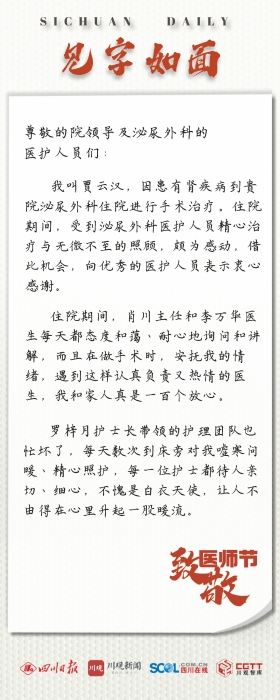 SICHUAN DAILY
见字如面
尊敬的院领导及泌尿外科的
医护人员们：
我叫贾云汉，因患有肾疾病到贵
院泌尿外科住院进行手术治疗。住院
期间，受到泌尿外科医护人员精心治
疗与无微不至的照顾，颇为感动，借
此机会，向优秀的医护人员表示衷心
感谢。
住院期间，肖川主任和李万华医
生每天都态度和蔼、耐心地询问和讲
解，而且在做手术时，安抚我的情
绪，遇到这样认真负责又热情的医
生，我和家人真是一百个放心。
罗梓月护士长带领的护理团队也
忙坏了，每天数次到床旁对我嘘寒问
暖、精心照护，每一位护士都待人亲
切、细心，不愧是白衣天使，让人不
由得在心里升起一股暖流。
致敬
医师节
四川日报
川观新闻
SCOL.COM.CN
四川在线
CGTT
川观智库